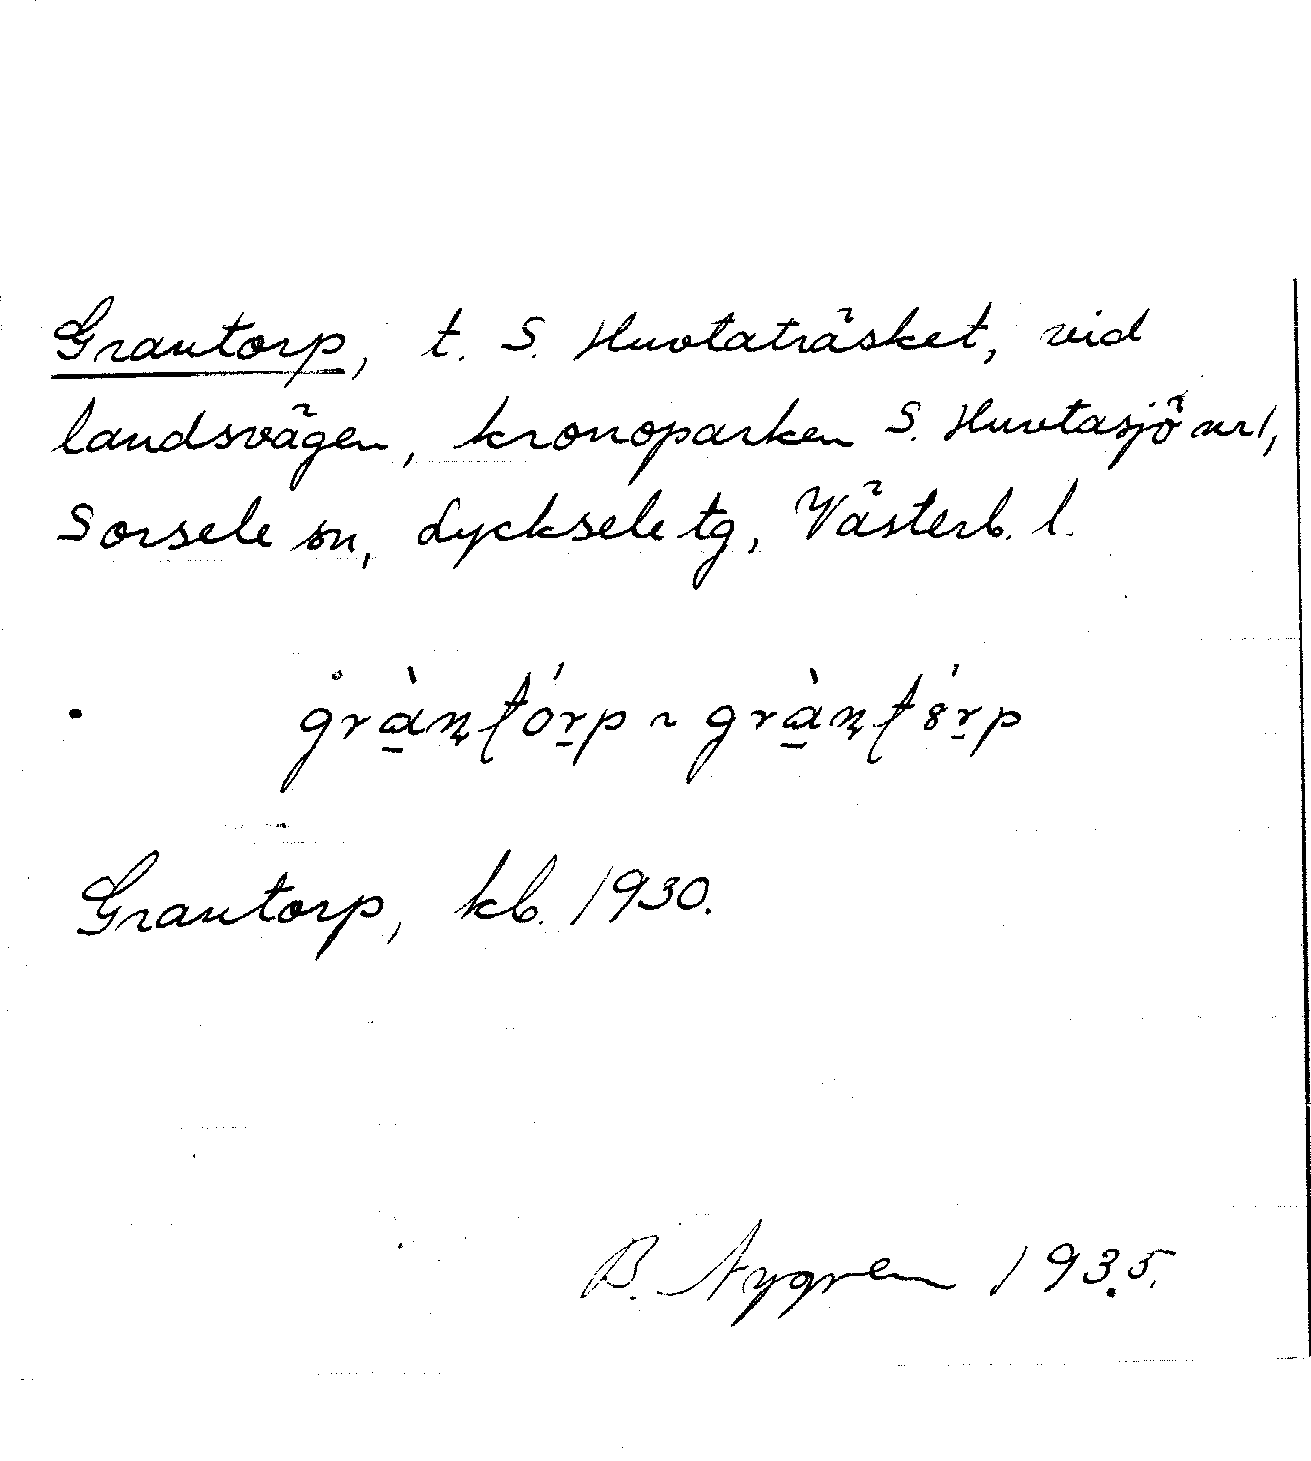 Grantorp, t. S. Huvtaträsket, vid
landsvägen, kronoparken S. Huvtasjö nr 1,
Sorsele sn, Lycksele tg, Västerb. l.
Grantorp, kb. 1930.
B. Nygren 1935.